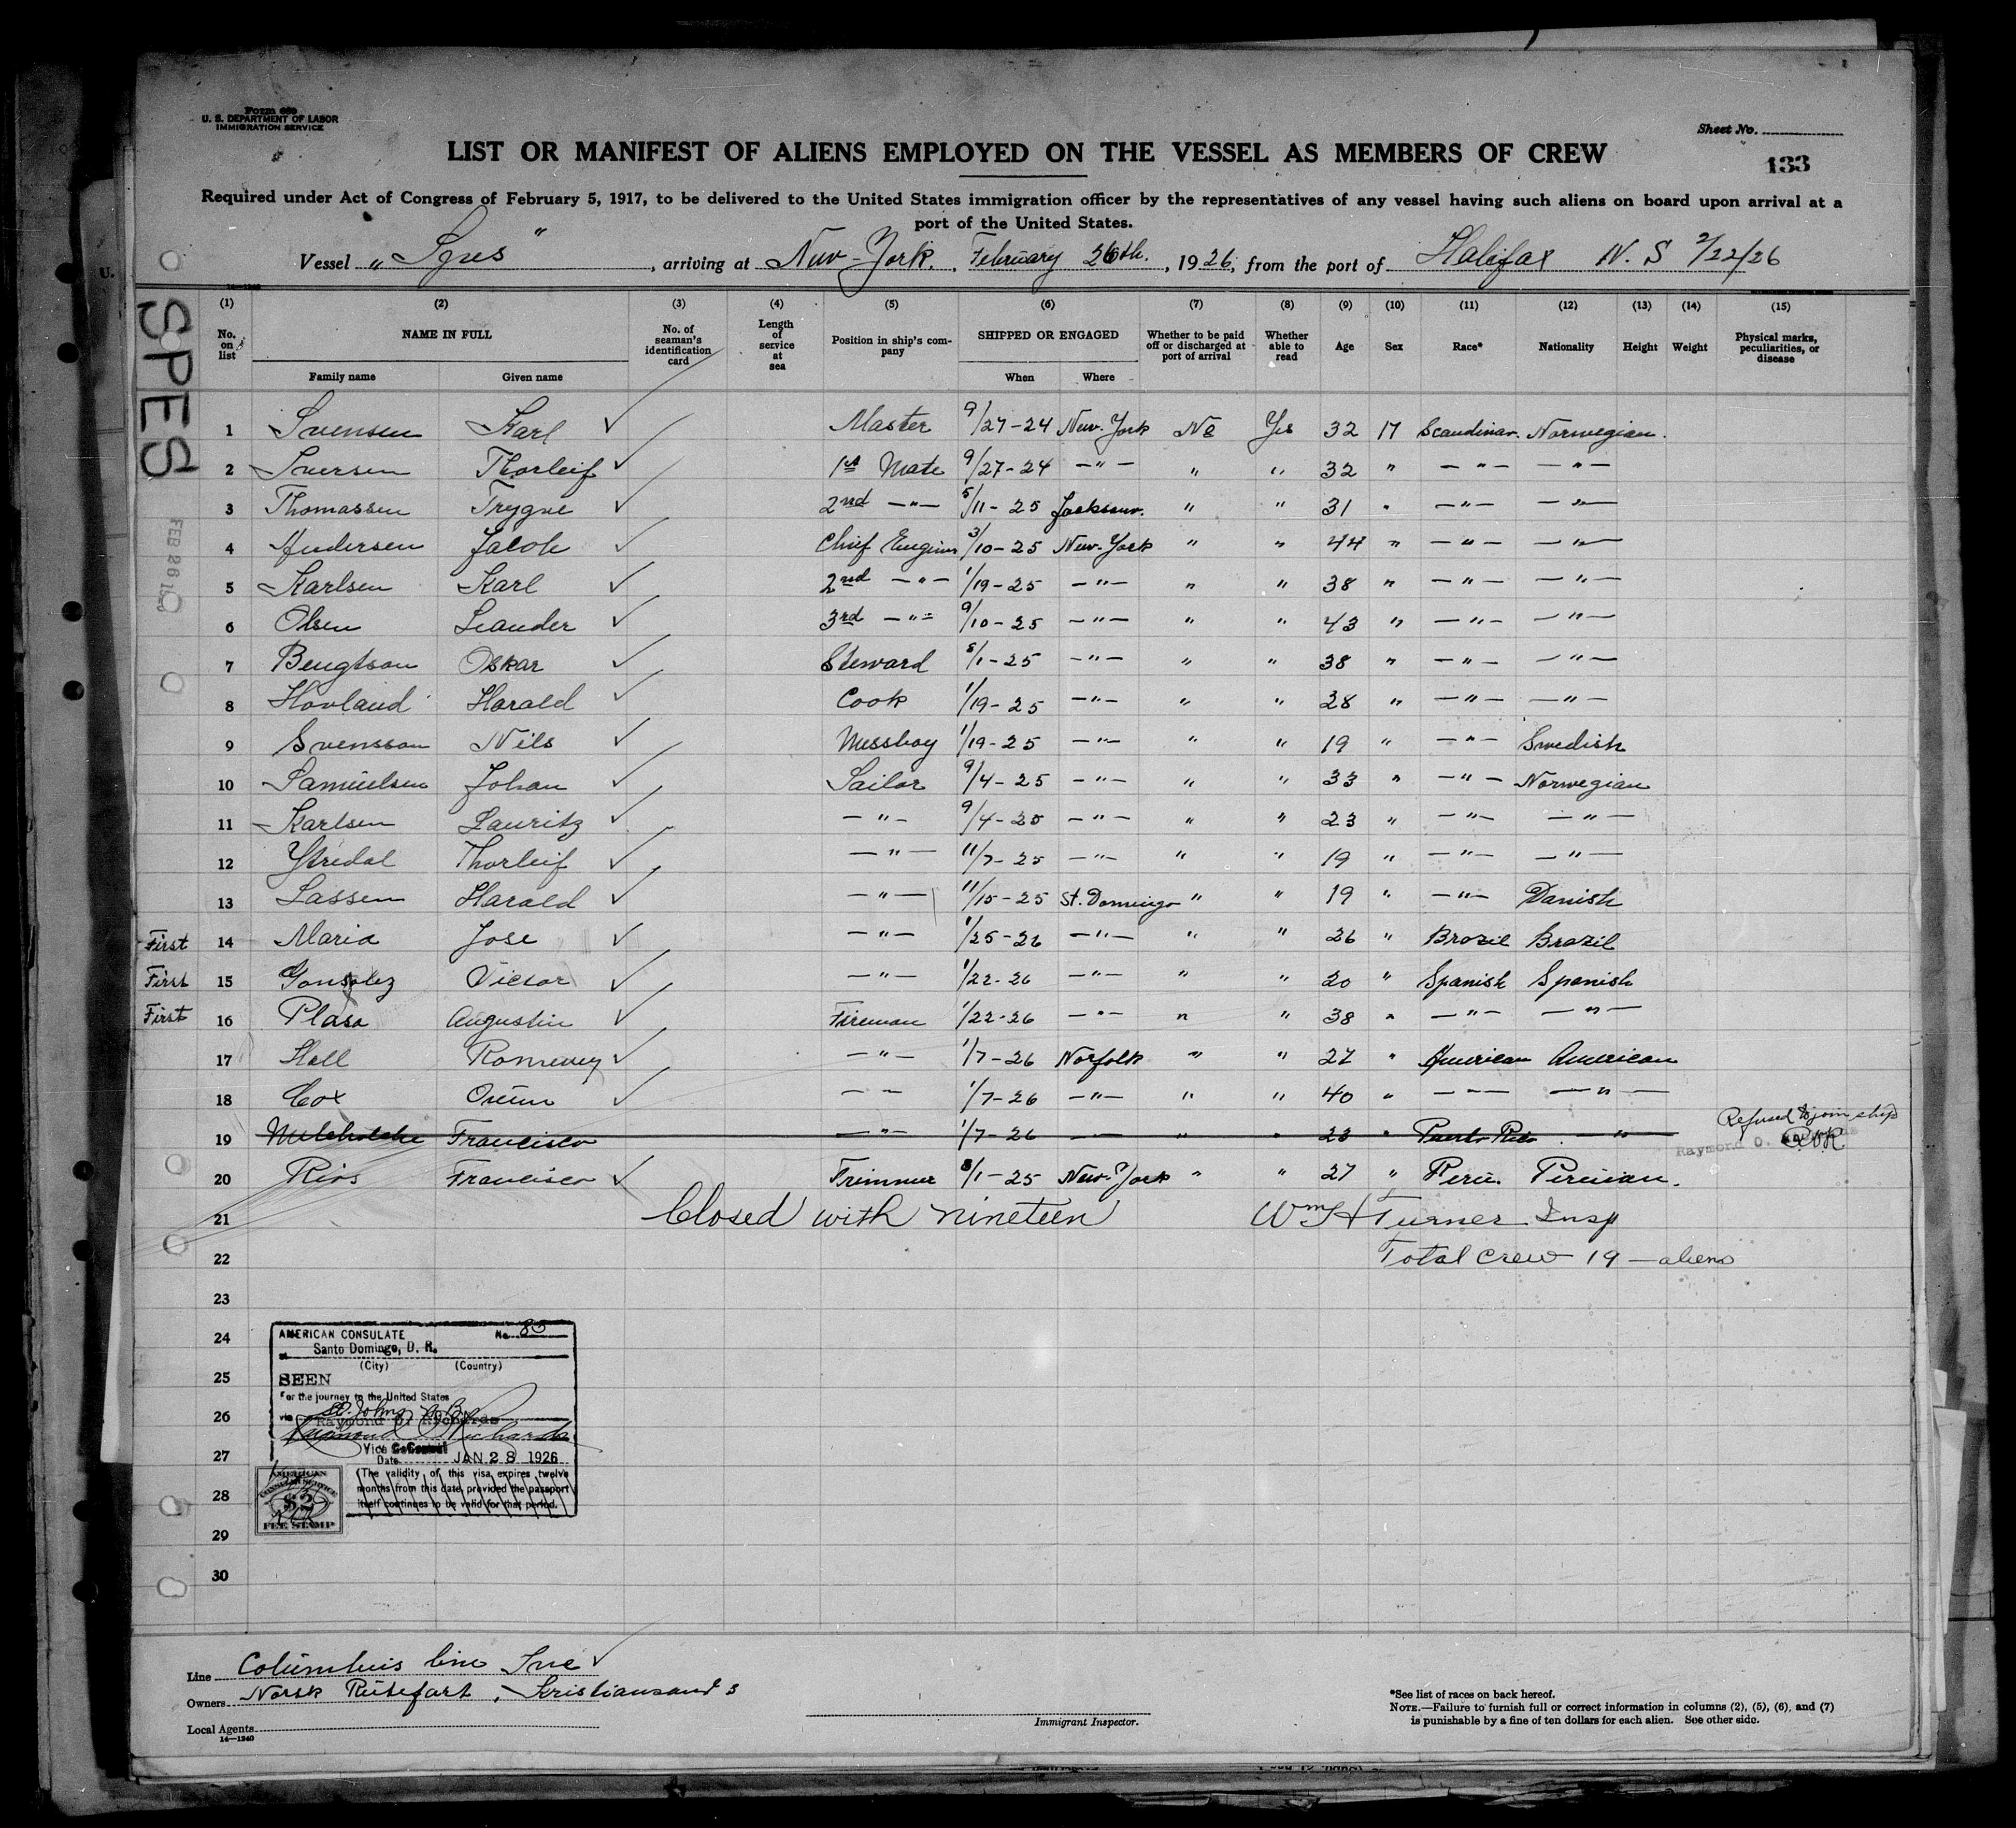 Form 680
U. S. DEPARTMENT OF LABOR
IMMIGRATION SERVICE
Sheet No.
133
LIST OR MANIFEST OF ALIENS EMPLOYED ON THE VESSEL AS MEMBERS OF CREW
Required under Act of Congress of February 5, 1917, to be delivered to the United States immigration officer by the representatives of any vessel having such aliens on board upon arrival at a
port of the United States.
Vessel „ Spes “, arriving at New-York. , February 26th. , 1926, from the port of Halifax N. S 2/22/26
SPES
FEB 26 1926
(1) (2) (3) (4) (5) (6) (7) (8) (9) (10) (11) (12) (13) (14) (15)
No. on list NAME IN FULL No. of seaman's identification card Length of service at sea Position in ship's company SHIPPED OR ENGAGED Whether to be paid off or discharged at port of arrival Whether able to read Age Sex Race* Nationality Height Weight Physical marks, peculiarities, or disease
Family name Given name When Where
1 Svensen Karl ✓ Master 9/27-24 New-York No Yes 32 M Scandinav. Norwegian.
2 Iversen Thorleif ✓ 1st Mate 9/27-24 — " — " " 32 " — " — — " —
3 Thomassen Trygve ✓ 2nd — " — 5/11-25 Jacksonv. " " 31 " — " — — " —
4 Andersen Jacob ✓ Chief Engineer 3/10-25 New-York " " 44 " — " — — " —
5 Karlsen Karl ✓ 2nd — " — 1/19-25 — " — " " 38 " — " — — " —
6 Olsen Leander ✓ 3rd — " — 9/10-25 — " — " " 43 " — " — — " —
7 Bengtson Oskar ✓ Steward 8/1-25 — " — " " 38 " — " — — " —
8 Hovland Harald ✓ Cook 1/19-25 — " — " " 28 " — " — — " —
9 Svensson Nils ✓ Messboy 1/19-25 — " — " " 19 " — " — Swedish
10 Samuelsen Johan ✓ Sailor 9/4-25 — " — " " 33 " — " — Norwegian
11 Karlsen Lauritz ✓ — " — 9/4-25 — " — " " 23 " — " — — " —
12 Ytredal Thorleif ✓ — " — 11/7-25 — " — " " 19 " — " — — " —
13 Lassen Harald ✓ — " — 11/15-25 St. Domingo " " 19 " — " — Danish
First 14 Maria Jose ✓ — " — 1/25-26 — " — " " 26 " Brazil Brazil
First 15 Gonsalez Victor ✓ — " — 1/22-26 — " — " " 20 " Spanish Spanish
First 16 Plasa Augustin ✓ Fireman 1/22-26 — " — " " 38 " — " — — " —
17 Hall Romeuey ✓ — " — 1/7-26 Norfolk " " 27 " American American
18 Cox ✓ — " — 1/7-26 — " — " " 40 " — " — — " —
19 Francisco — " — 1/7-26 — " " 23 " Puerto Rico — " — Refused to join ship ROR
Raymond O.
20 Rios Francisco ✓ Trimmer 8/1-25 New-York " " 27 " Peru. Peruvian.
21 Closed with nineteen Wm H Turner Insp
22 Total crew 19 — aliens
23
24
25
26
27
28
29
30
AMERICAN CONSULATE No. 85
at Santo Domingo, D. R.
(City) (Country)
SEEN
For the journey to the United States
via St. Johns N. B.
Raymond O. Richards
Raymond O Richards
Vice Consul
Date JAN 28 1926
(The validity of this visa expires twelve
months from this date provided the passport
itself continues to be valid for that period.
AMERICAN
CONSULAR SERVICE
$2
FEE STAMP
Line Columbus line Inc ✓
Owners Norsk Rutefart, Kristiansand s
Local Agents
14—1240
Immigrant Inspector.
*See list of races on back hereof.
NOTE.—Failure to furnish full or correct information in columns (2), (5), (6), and (7)
is punishable by a fine of ten dollars for each alien. See other side.